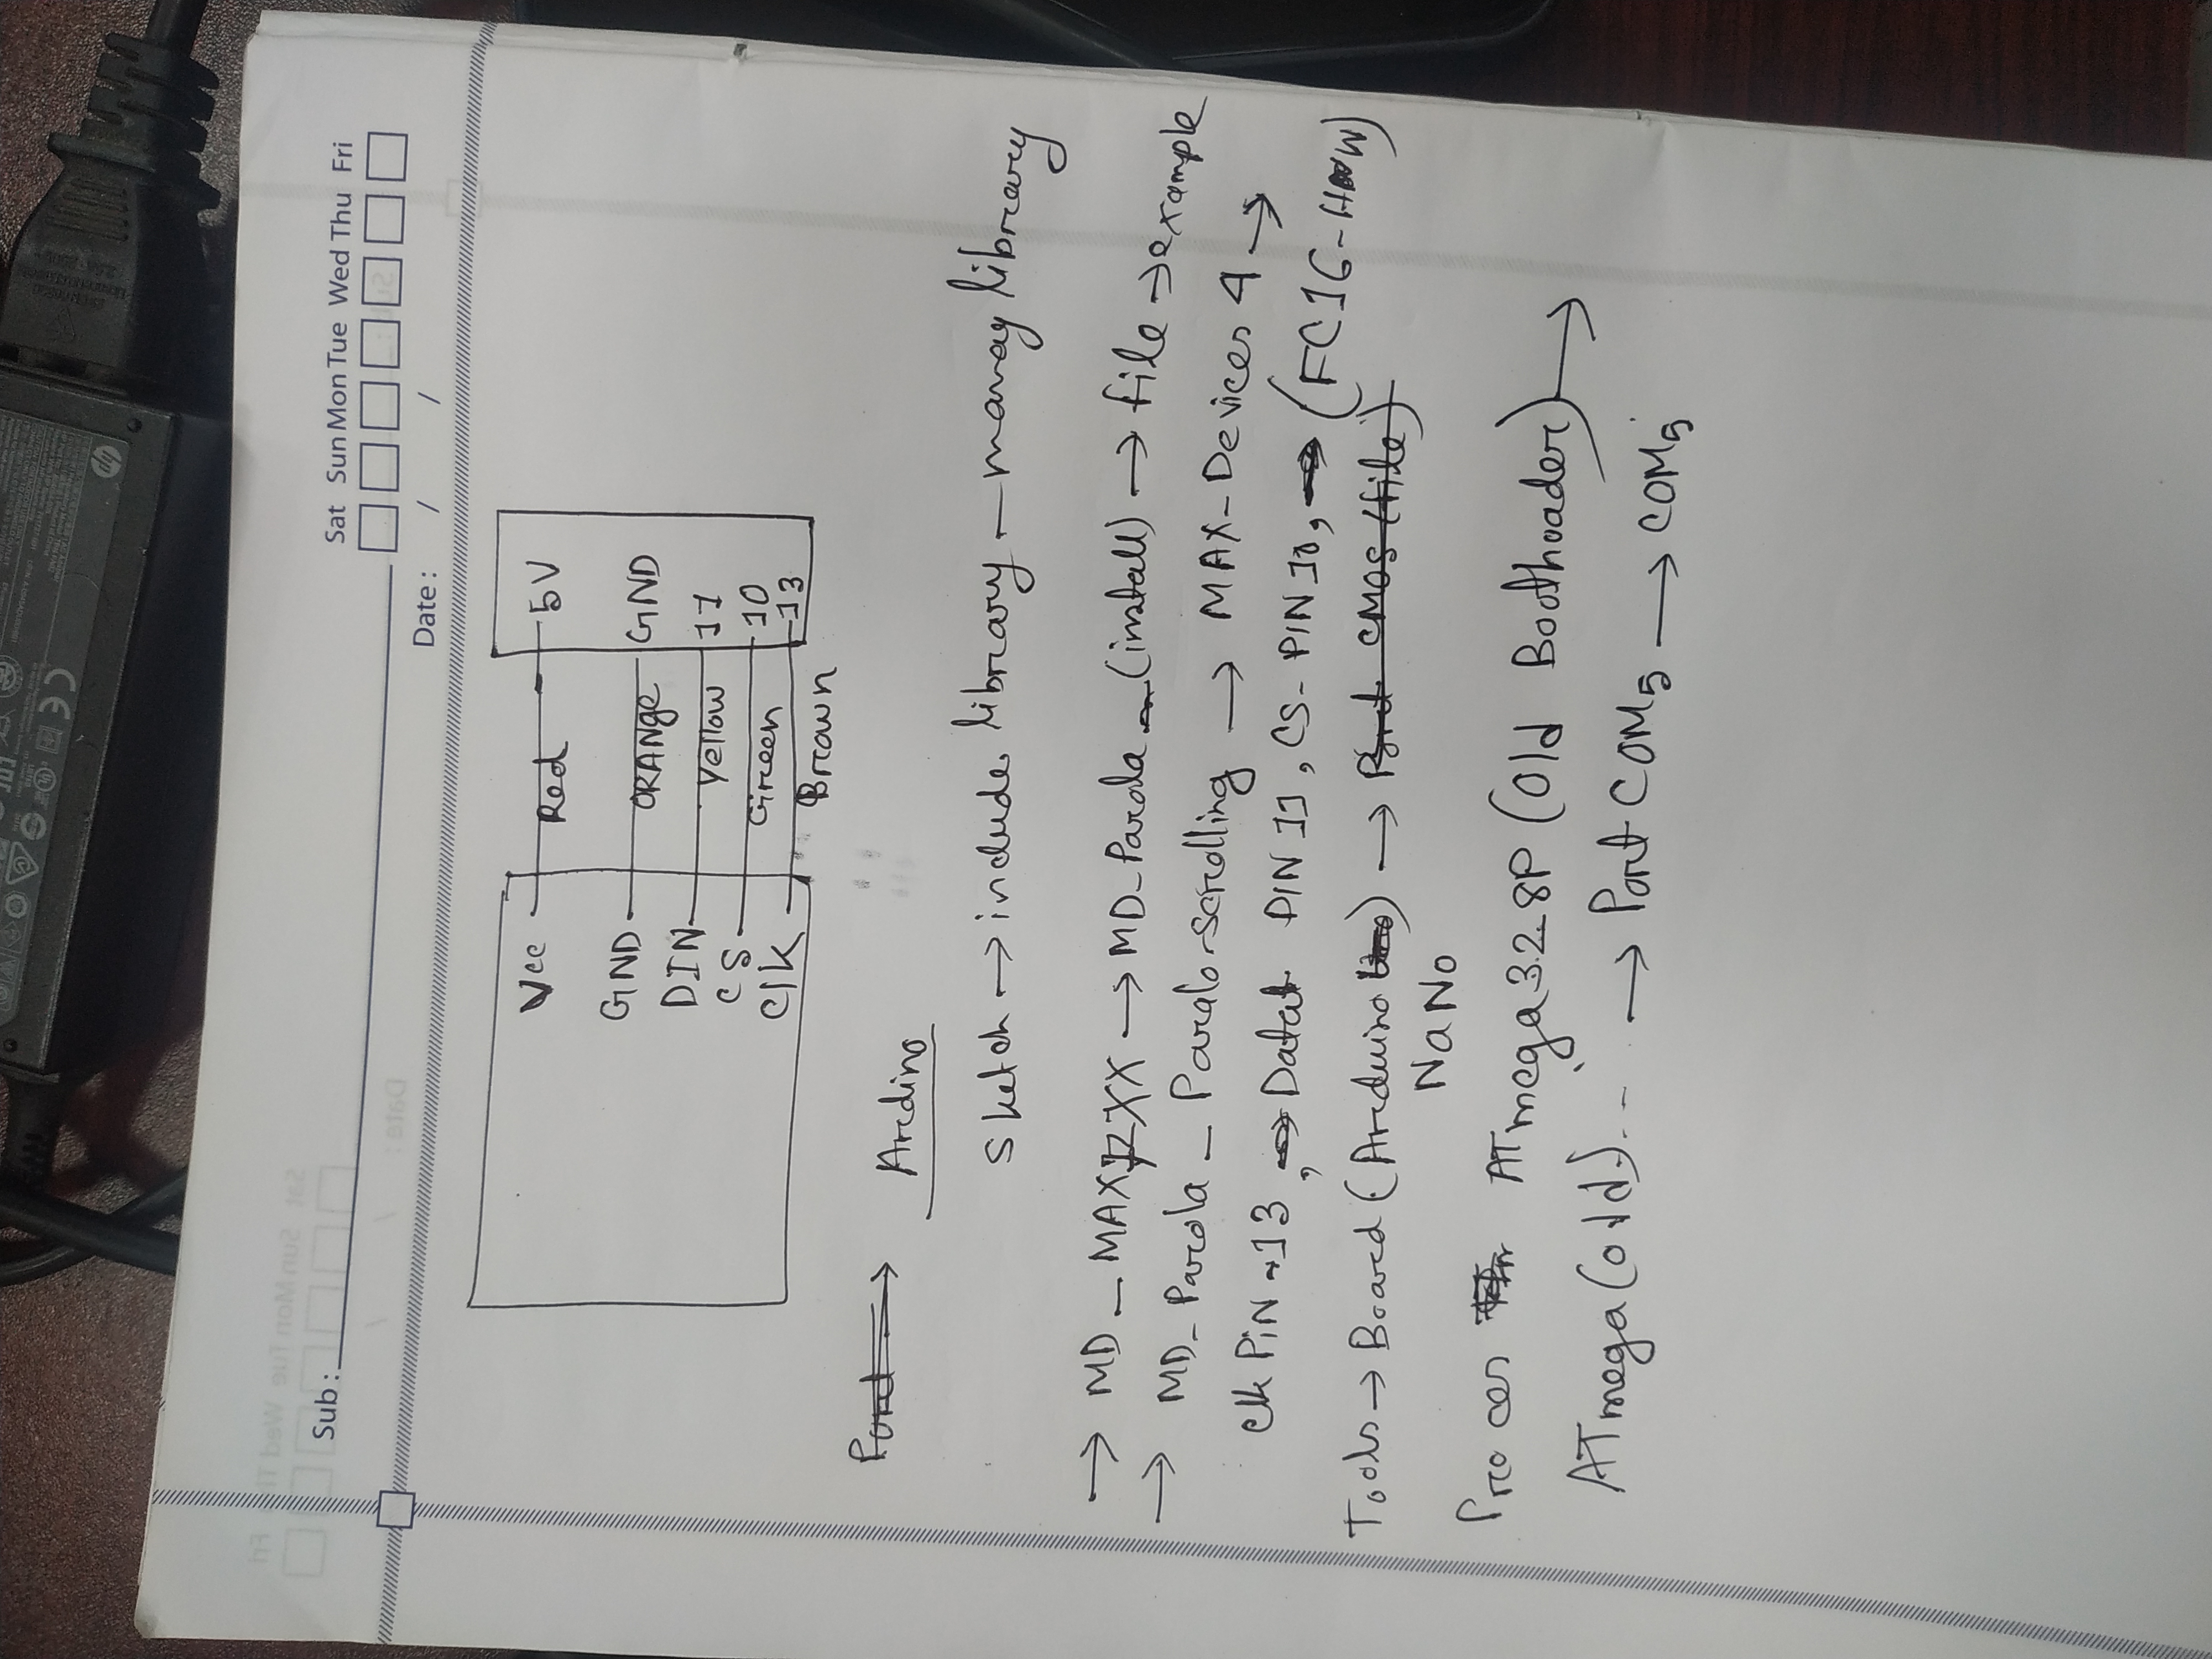 hp
Sub :
Sat Sun Mon Tue Wed Thu Fri
Date : / /
Vcc Red 5V
GND ORANge GND
DIN Yellow 11
CS Green 10
Clk Brown 13
Ardino
Sketch → include library – manag library
→ MD_MAX72XX → MD_Parola – (install) → file → example
→ MD_Parola – Paralo-scrolling → MAX-Devices 4 →
Clk PiN → 13, → Data DIN 11, CS-PIN 10, → (FC16-HW)
Tools → Board (Arduino Uno) → Port CMOS (file)
NaNo
Proces ATmega328P (Old Boothoader) →
ATmega (old)... → Port COM5 → COM5